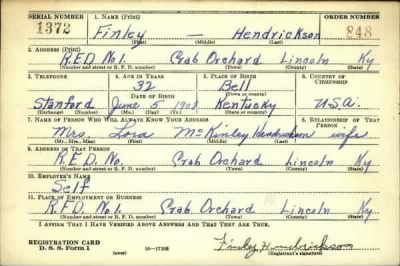 SERIAL NUMBER 1. NAME (Print) ORDER NUMBER
1372 Finley — Hendrickson 848
(First) (Middle) (Last)
2. ADDRESS (Print)
R.F.D. No 1. Crab Orchard Lincoln Ky
(Number and street or R. F. D. number) (Town) (County) (State)
3. TELEPHONE 4. AGE IN YEARS 5. PLACE OF BIRTH 6. COUNTRY OF CITIZENSHIP
32 Bell
DATE OF BIRTH (Town or county)
Stanford June 5 1908 Kentucky U.S.A.
(Exchange) (Number) (Mo.) (Day) (Yr.) (State or country)
7. NAME OF PERSON WHO WILL ALWAYS KNOW YOUR ADDRESS 8. RELATIONSHIP OF THAT PERSON
Mrs. Lora McKinley Hendrickson wife
(Mr., Mrs., Miss) (First) (Middle) (Last)
9. ADDRESS OF THAT PERSON
R.F.D. No. Crab Orchard Lincoln Ky
(Number and street or R. F. D. number) (Town) (County) (State)
10. EMPLOYER'S NAME
Self
11. PLACE OF EMPLOYMENT OR BUSINESS
R.F.D. No 1. Crab Orchard Lincoln Ky
(Number and street or R. F. D. number) (Town) (County) (State)
I AFFIRM THAT I HAVE VERIFIED ABOVE ANSWERS AND THAT THEY ARE TRUE.
REGISTRATION CARD Finley Hendrickson
D. S. S. Form 1 (over) 16—17105 (Registrant's signature)